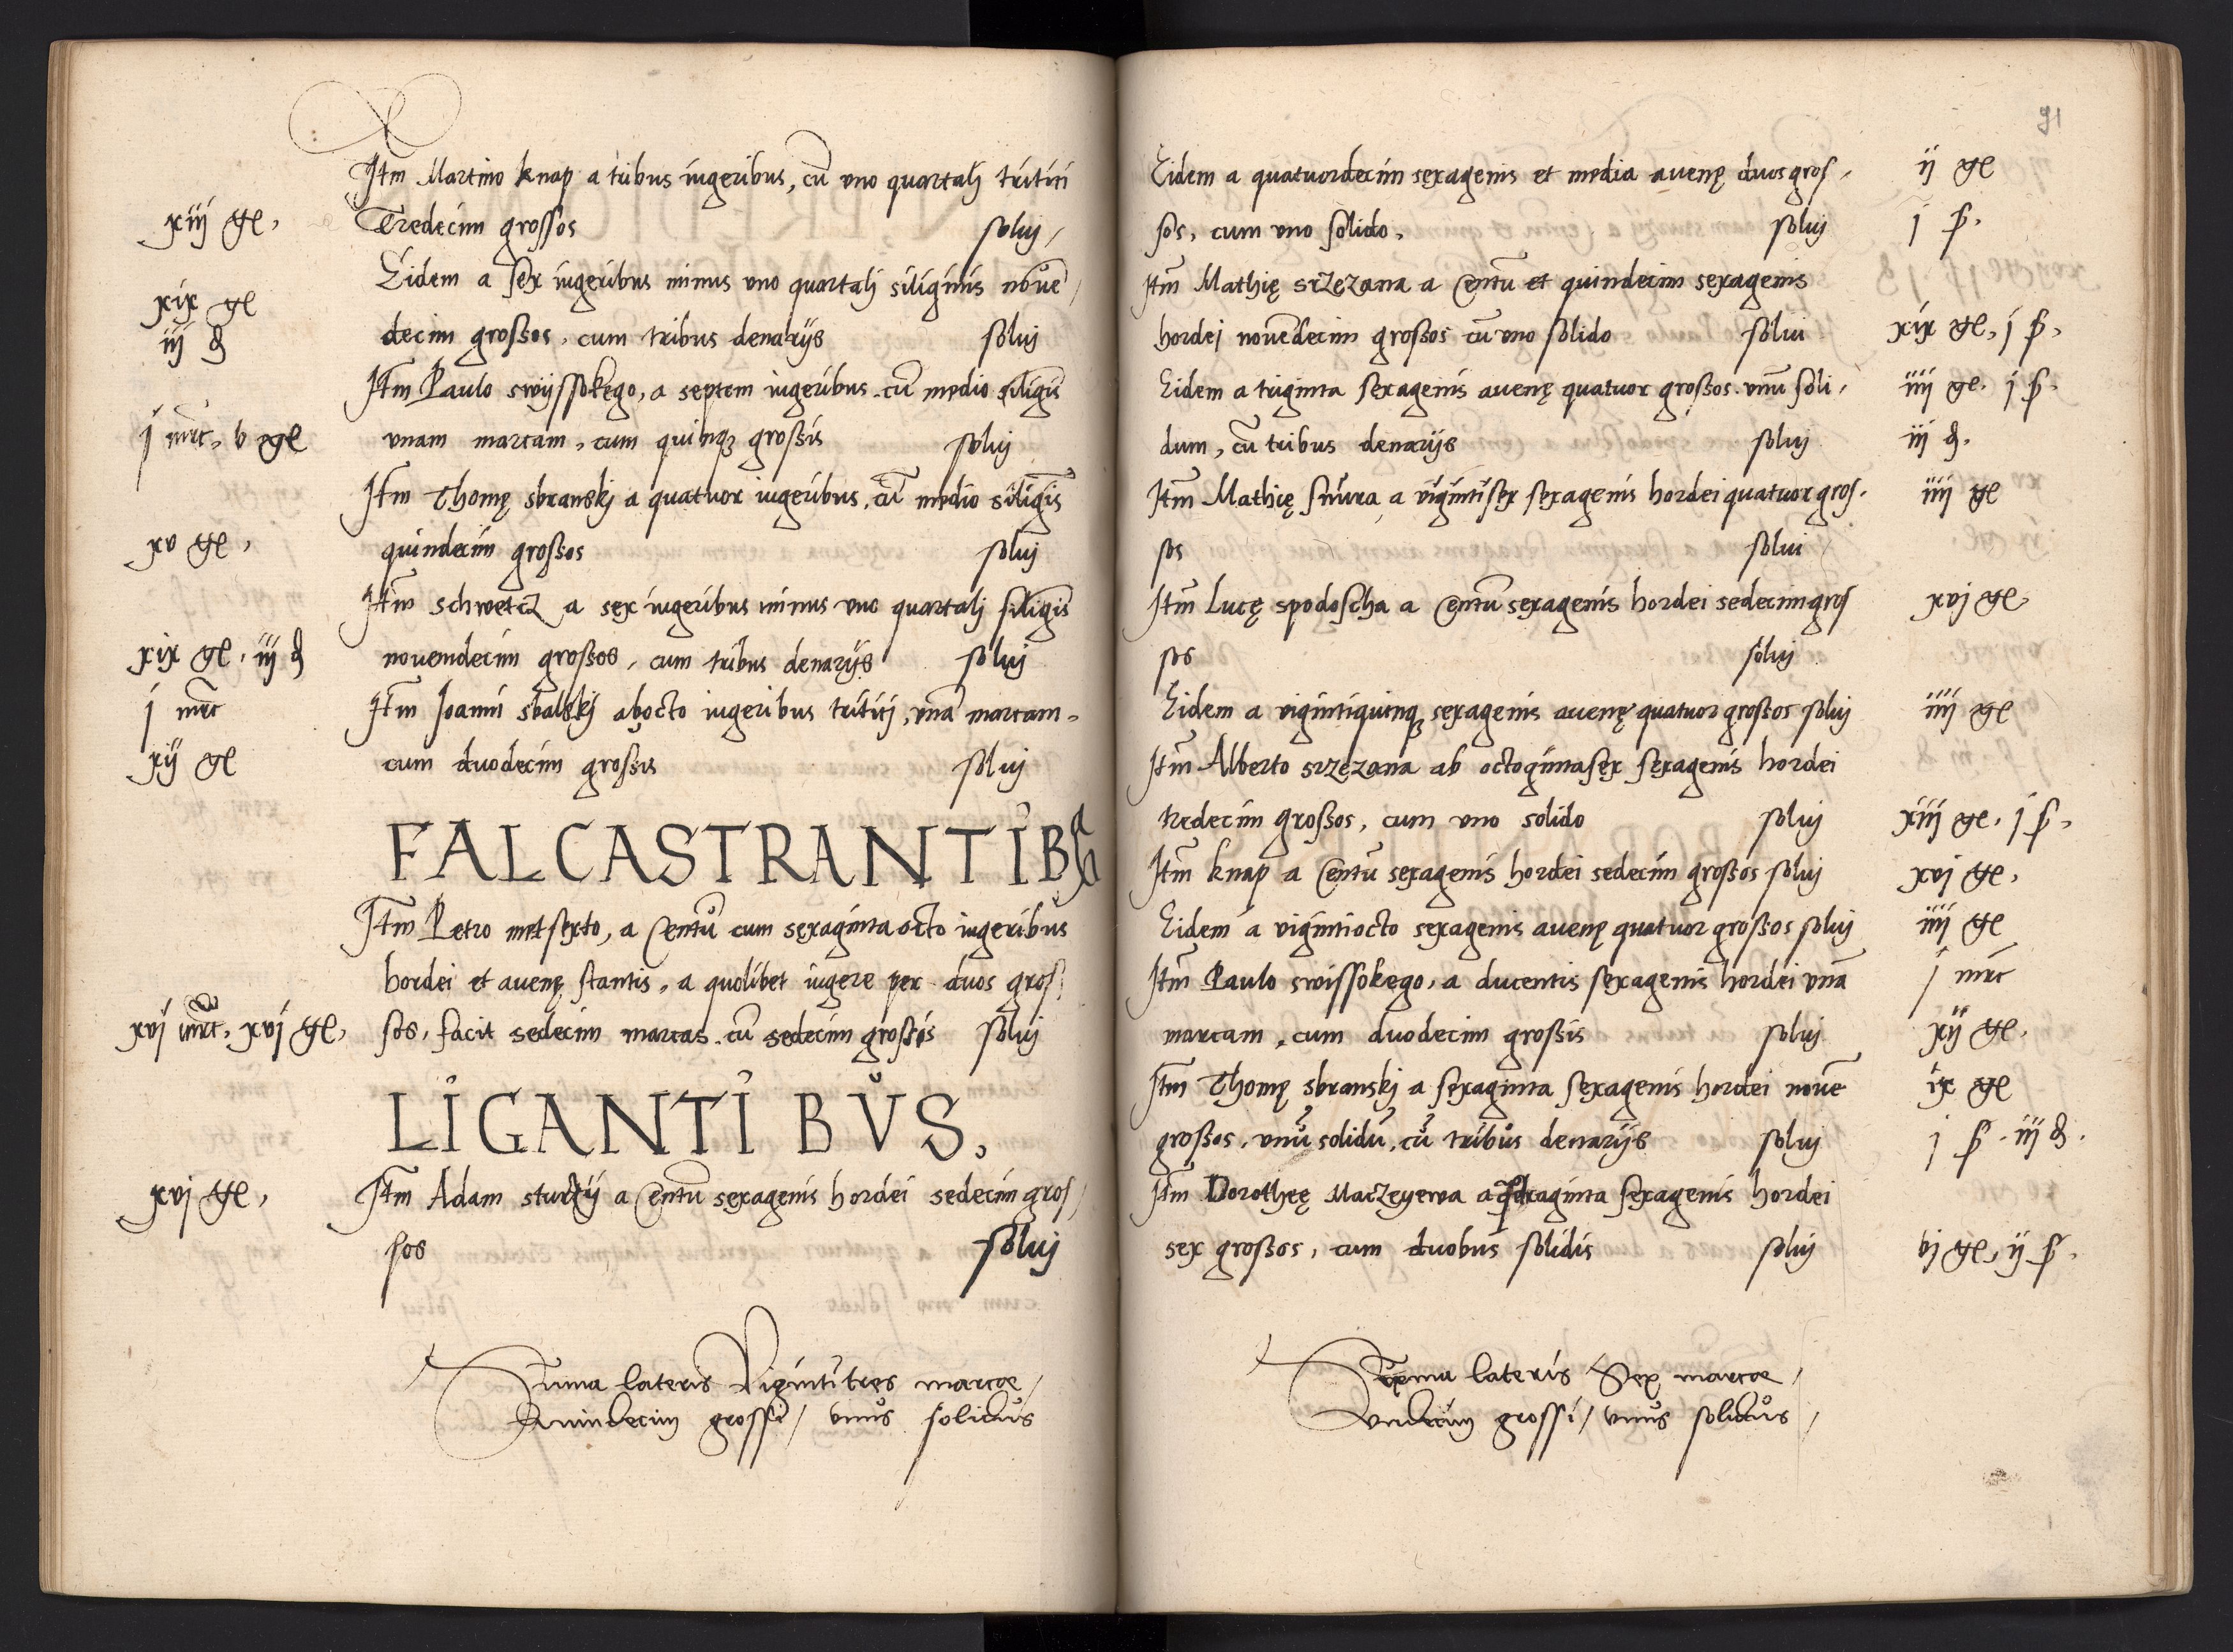 Itm Martino knap a tribus iugeribus, cũ uno quartalj tritici
xiij gℓ, Tredecim grossos soluj
Eidem a sex iugeribus minus uno quartalj siliginis nouẽ
xix gℓ
iij ₰ decim grossos, cum tribus denarijs soluj
Itm Paulo swyssokego, a septem iugeribus cũ medio siligis
j mrc, v gℓ unam marcam, cum quinqȝ grossis soluj
Itm Thomę sbranskj a quatuor iugeribus, cũ medio siligis
xv gℓ, quindecim grossos soluj
Itm schwetcz a sex iugeribus minus uno quartalj siligis
xix gℓ. iij ₰ nouemdecim grossos, cum tribus denarijs soluj
j mrc Itm Joanni sbalskj ab octo iugeribus tritici, vnã marcam,
xij gℓ cum duodecim grossis soluj
FALCASTRANTIBꝰ
Itm Petro metserto, a Centũ cum sexaginta octo iugeribus
hordei et auenę stantis, a quolibet iugere per duos gros
xvj mrc, xvj gℓ, sos, facit sedecim marcas. cũ sedecim grossis soluj
LIGANTIBVS,
xvj gℓ, Itm Adam sturzij a Centũ sexagenis hordei sedecim gros
sos soluj
Summa lateris Vigintitres marcae
Quindecim grossi / vnus solidus
91
Eidem a quatuordecim sexagenis et media auenę duos gros, ij gℓ
sos, cum uno solido, soluj j ꝭ.
Itm Mathię srzezana a Centũ et quindecim sexagenis
hordej nouẽdecim grossos cũ uno solido solui xix gℓ, j ꝭ,
Eidem a triginta sexagenis auenę quatuor grossos. vnũ soli, iiij gℓ. j ꝭ.
dum, cũ tribus denarijs soluj iij ₰.
Itm Mathię snura, a vigintisex sexagenis hordei quatuor gros. iiij gℓ
sos solui
Itm Lucę spodoscha a Centũ sexagenis hordei sedecim gros xvj gℓ
sos soluj
Eidem a vigintiquinqȝ sexagenis auenę quatuor grossos soluj iiij gℓ
Itm Alberto srzezana ab octogintasex sexagenis hordei
tredecim grossos, cum uno solido soluj xiij gℓ, j ꝭ,
Itm knap a Centũ sexagenis hordei sedecim grossos soluj xvj gℓ,
Eidem a vigintiocto sexagenis auenę quatuor grossos soluj iiij gℓ
Itm Paulo swissokego, a ducentis sexagenis hordei vnã j mrc
marcam, cum duodecim grossis soluj xij gℓ.
Itm Thomę sbranskj a sexaginta sexagenis hordei nouẽ ix gℓ
grossos, vnũ solidũ, cũ tribus denarijs soluj j ꝭ. iij ₰.
Itm Dorotheę Maczeyewa a quadraginta sexagenis hordei
sex grossos, cum duobus solidis soluj vj gℓ, ij ꝭ.
Summa lateris Sex marcae,
vndecim grossi / vnus solidus,